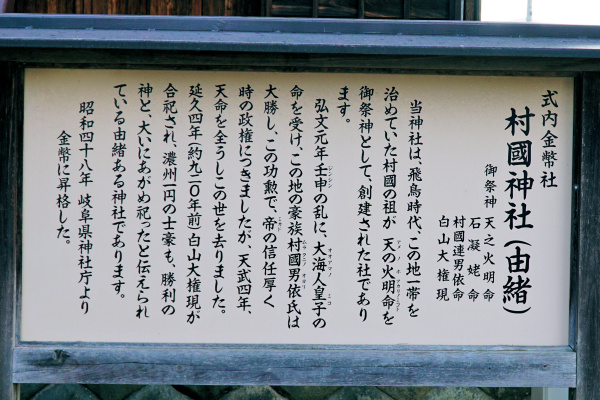 式内金幣社
村國神社(由緒)
御祭神 天之火明命
石凝姥命
村國連男依命
白山大権現
当神社は、飛鳥時代、この地一帯を
治めていた村國の祖が 天の火明命を
御祭神として、創建された社であり
ます。
弘文元年壬申の乱に、大海人皇子の
命を受け、この地の豪族村國男依氏は
大勝し、この功勲で、帝の信任厚く
時の政権につきましたが、天武四年、
天命を全うしこの世を去りました。
延久四年(約九二〇年前)白山大権現が
合祀され、濃州一円の士豪も、勝利の
神と、大いにあがめ祀ったと伝えられ
ている由緒ある神社であります。
昭和四十八年 岐阜県神社庁より
金幣に昇格した。